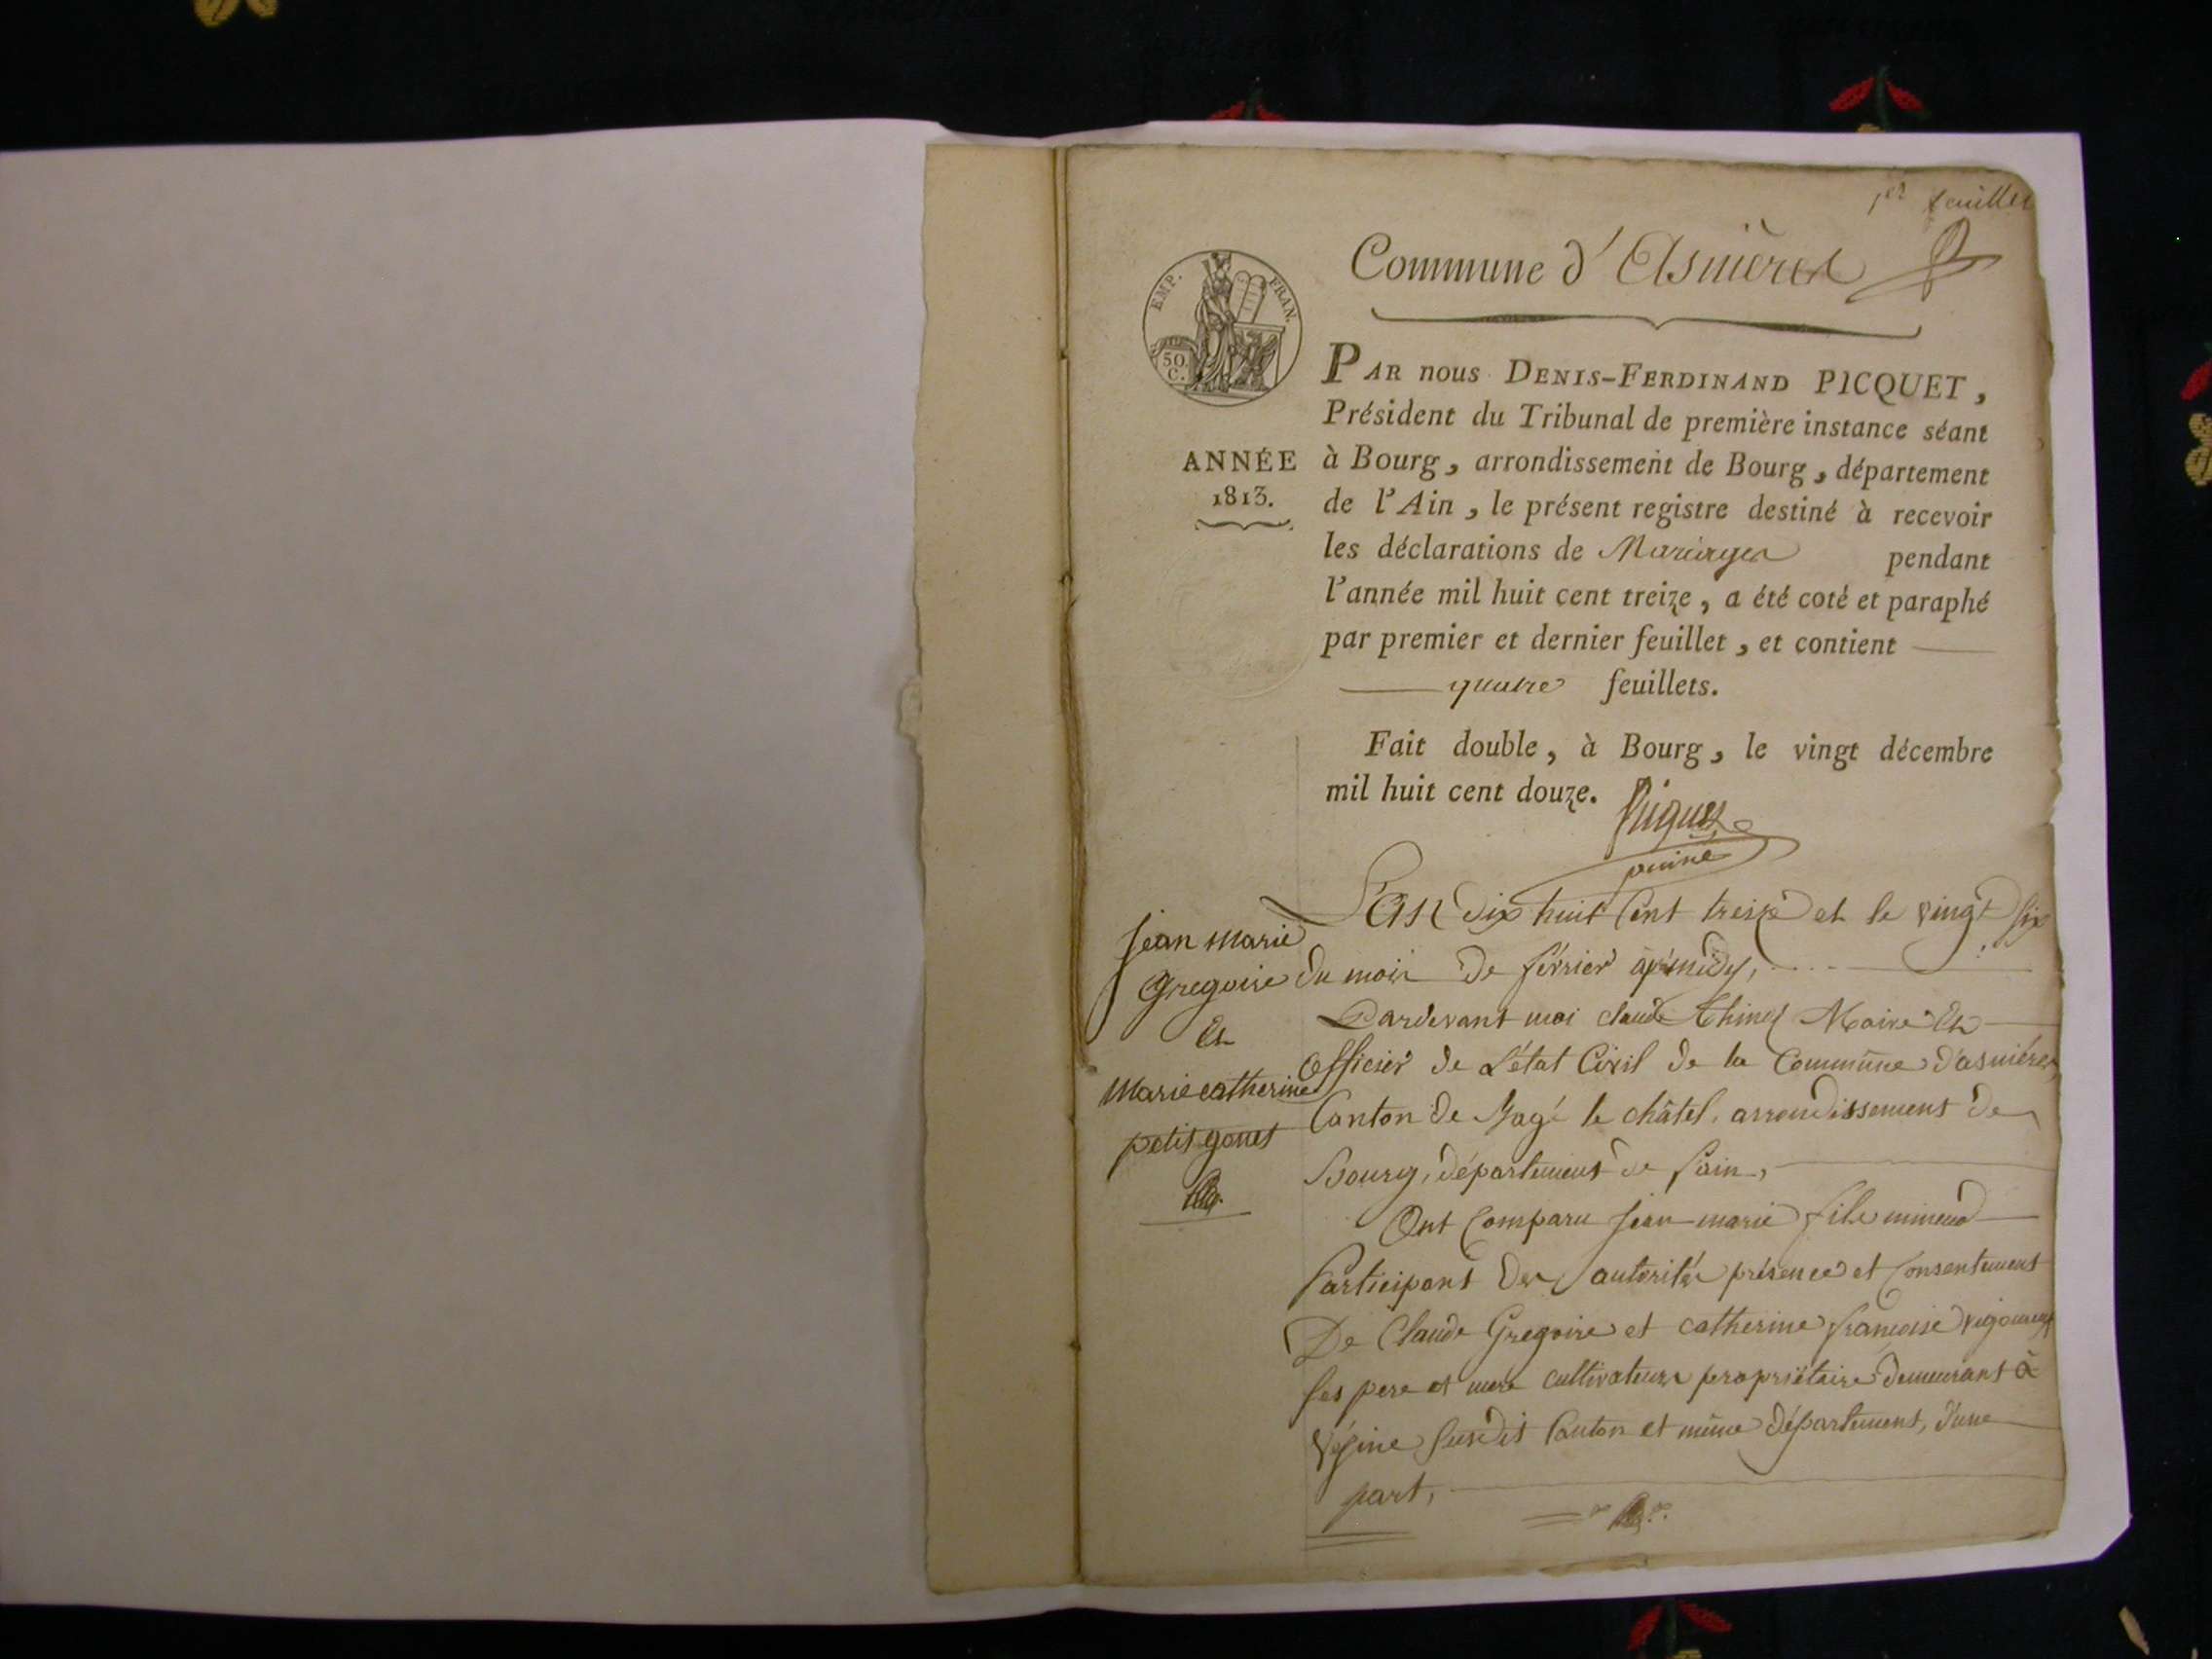 1er feuillet
Commune d'Asnieres
EMP. FRAN.
50
C.
PAR nous DENIS-FERDINAND PICQUET,
Président du Tribunal de première instance séant
ANNÉE
1813.
à Bourg, arrondissement de Bourg, département
de l'Ain, le présent registre destiné à recevoir
les déclarations de Mariages pendant
l'année mil huit cent treize, a été coté et paraphé
par premier et dernier feuillet, et contient
quatre feuillets.
Fait double, à Bourg, le vingt décembre
mil huit cent douze.
Picquet
Jean marie
Gregoire
Et
Marie catherine
petit gonet
L'an dix huit Cent treize et le vingt six
du mois de février après midy,
Pardevant moi claude Mairie Et
officier de L'état Civil de la Commune d'asnières,
Canton de Bagé le châtel, arrondissement de
Bourg, département de l'ain,
Ont Comparu Jean marie fils mineur
Participant des autorités présence et Consentement
De Claude Gregoire et catherine françoise
ses pere et mere cultivateurs propriétaire demeurant à
Vésine susdit Canton et même département, d'une
part,